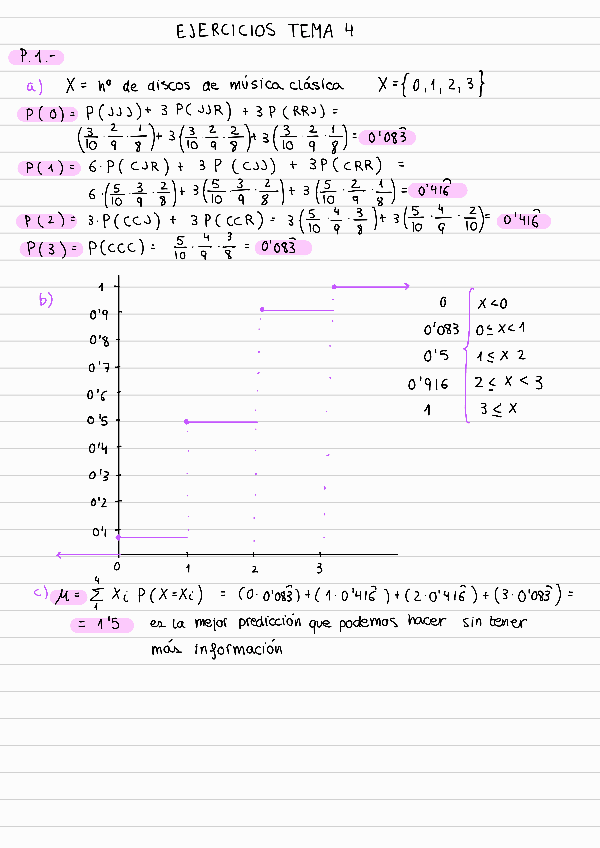 EJERCICIOS TEMA 4
P.1.-
a) X = nº de discos de música clásica X = {0, 1, 2, 3}
P(0) = P(JJJ) + 3 P(JJR) + 3 P(RRJ) =
(3/10 · 2/9 · 1/8) + 3(3/10 · 2/9 · 2/8) + 3(3/10 · 2/9 · 1/8) = 0'083̂
P(1) = 6·P(CJR) + 3 P(CJJ) + 3P(CRR) =
6·(5/10 · 3/9 · 2/8) + 3(5/10 · 3/9 · 2/8) + 3(5/10 · 2/9 · 1/8) = 0'416̂
P(2) = 3·P(CCJ) + 3P(CCR) = 3(5/10 · 4/9 · 3/8) + 3(5/10 · 4/9 · 2/10) = 0'416̂
P(3) = P(CCC) = 5/10 · 4/9 · 3/8 = 0'083̂
b)
1
0'9
0'8
0'7
0'6
0'5
0'4
0'3
0'2
0'1
0 1 2 3
0 { X < 0
0'083 0 ≤ X < 1
0'5 1 ≤ X 2
0'916 2 ≤ X < 3
1 3 ≤ X
c) μ = 4 Σ 1 Xi P(X=Xi) = (0·0'083̂) + (1·0'416̂) + (2·0'416̂) + (3·0'083̂) =
= 1'5 es la mejor predicción que podemos hacer sin tener
más información